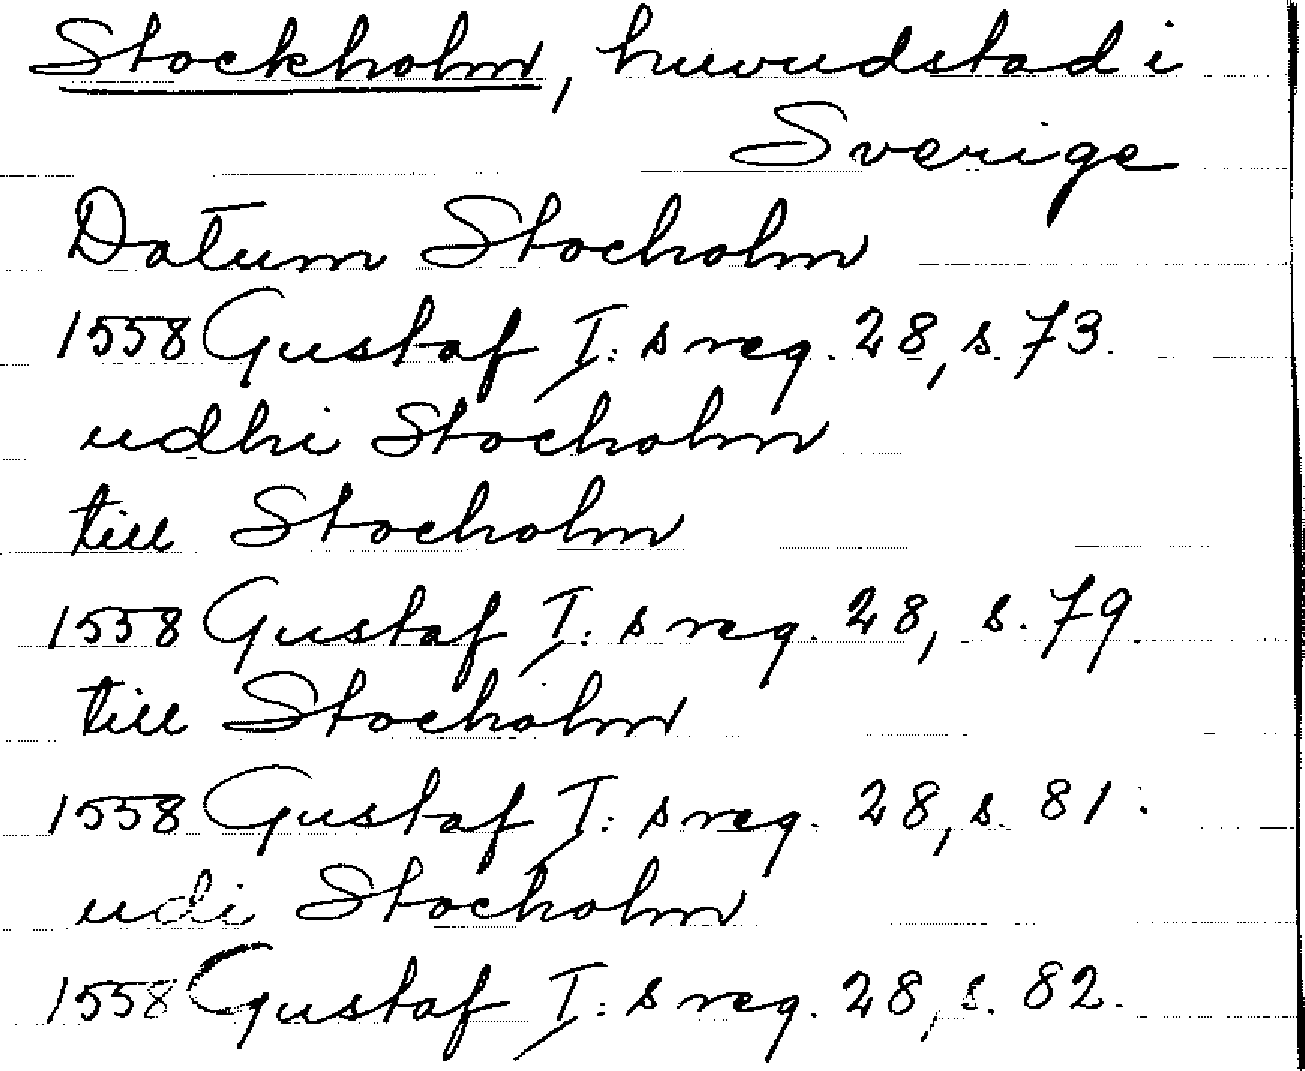 Stockholm, huvudstad i
Sverige
Datum Stocholm
1558 Gustaf I:s reg. 28, s. 73.
udhi Stocholm
till Stocholm
1558 Gustaf I:s reg. 28, s. 79.
till Stocholm
1558 Gustaf I:s reg. 28, s. 81.
udi Stocholm
1558 Gustaf I:s reg. 28, s. 82.